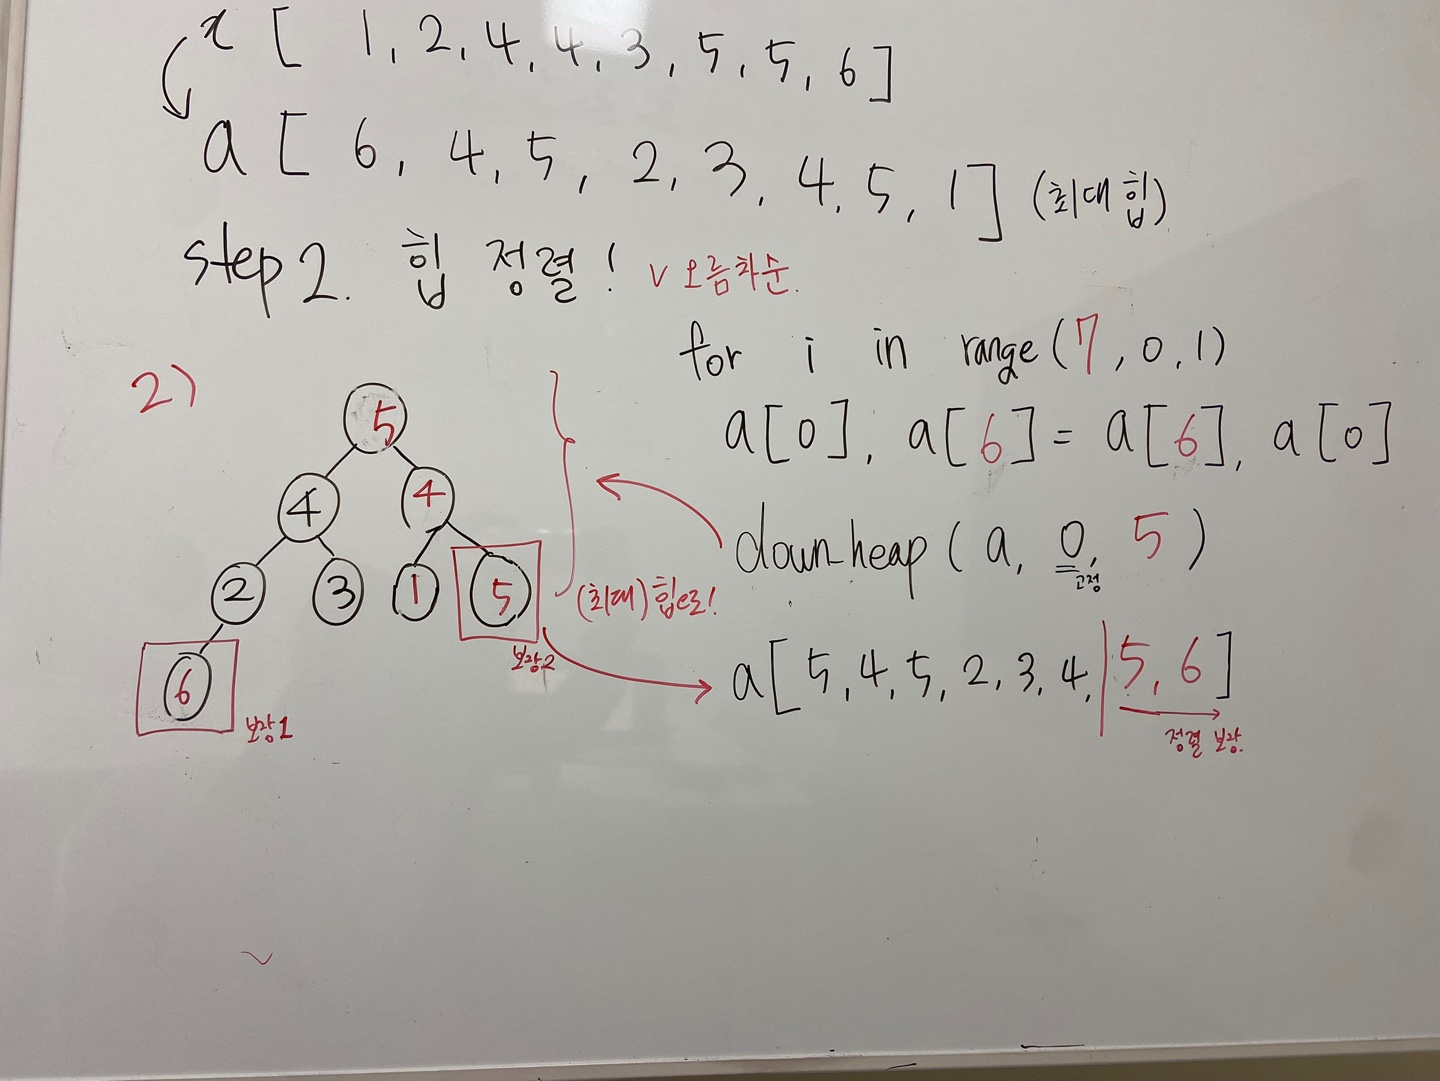 x [ 1, 2, 4, 4, 3, 5, 5, 6 ]
a [ 6, 4, 5, 2, 3, 4, 5, 1 ] (최대 힙)
step 2. 힙 정렬! v 오름차순.
for i in range(7, 0, 1)
2)
a[0], a[6] = a[6], a[0]
5
4 4
down_heap(a, 0, 5)
고정
2 3 1 5
(최대)힙으로!
보장2
a[5, 4, 5, 2, 3, 4, | 5, 6]
6
보장1
정렬 보장.